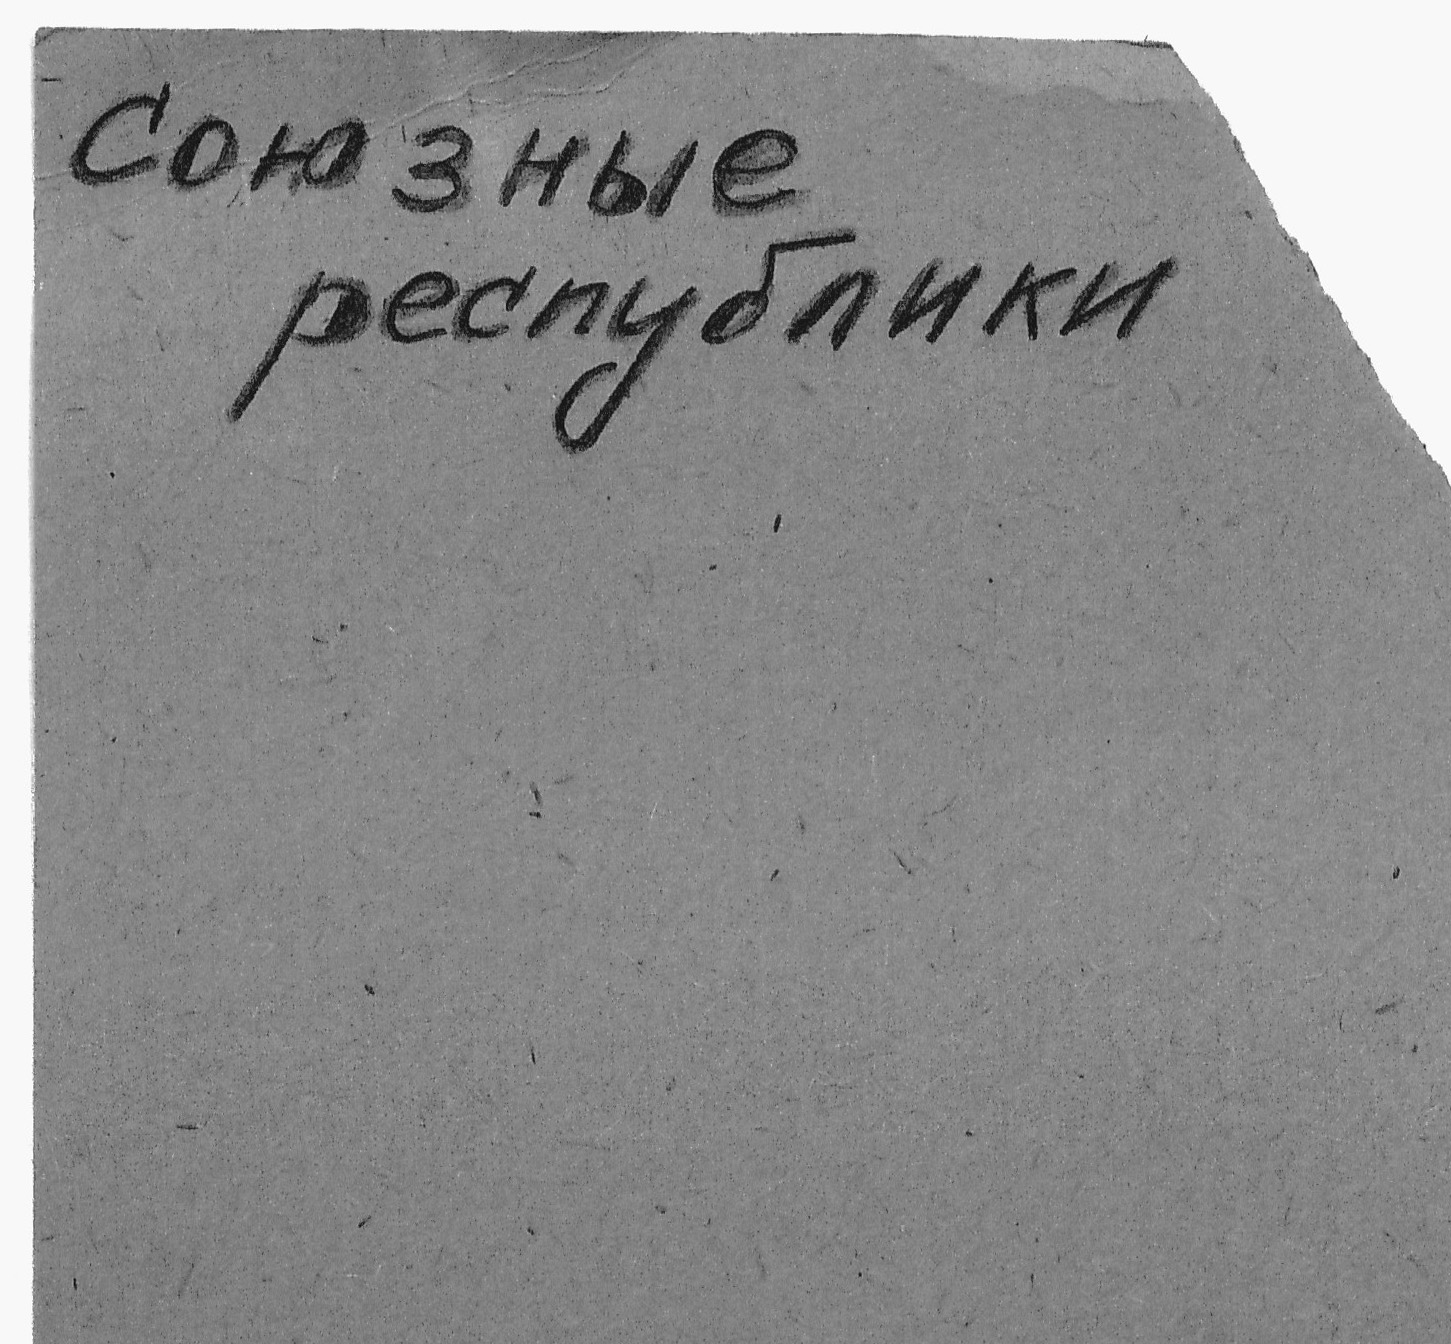 Союзные
республики